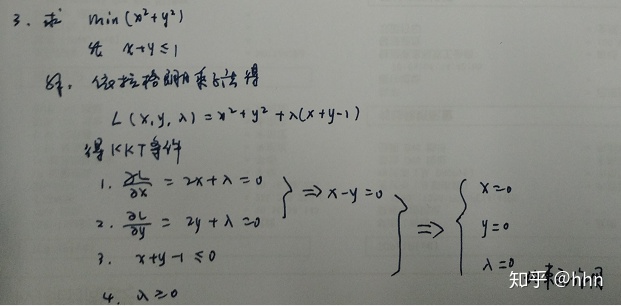 3. 求 min(x²+y²)
x+y≤1
解. 依拉格朗日乘子法得
L(x,y,λ)=x²+y²+λ(x+y-1)
得KKT条件
1. ∂L/∂x = 2x+λ=0
2. ∂L/∂y = 2y+λ=0
⇒ x-y=0
3. x+y-1≤0
4. λ≥0
⇒ { x=0
y=0
λ=0
知乎 @hhn